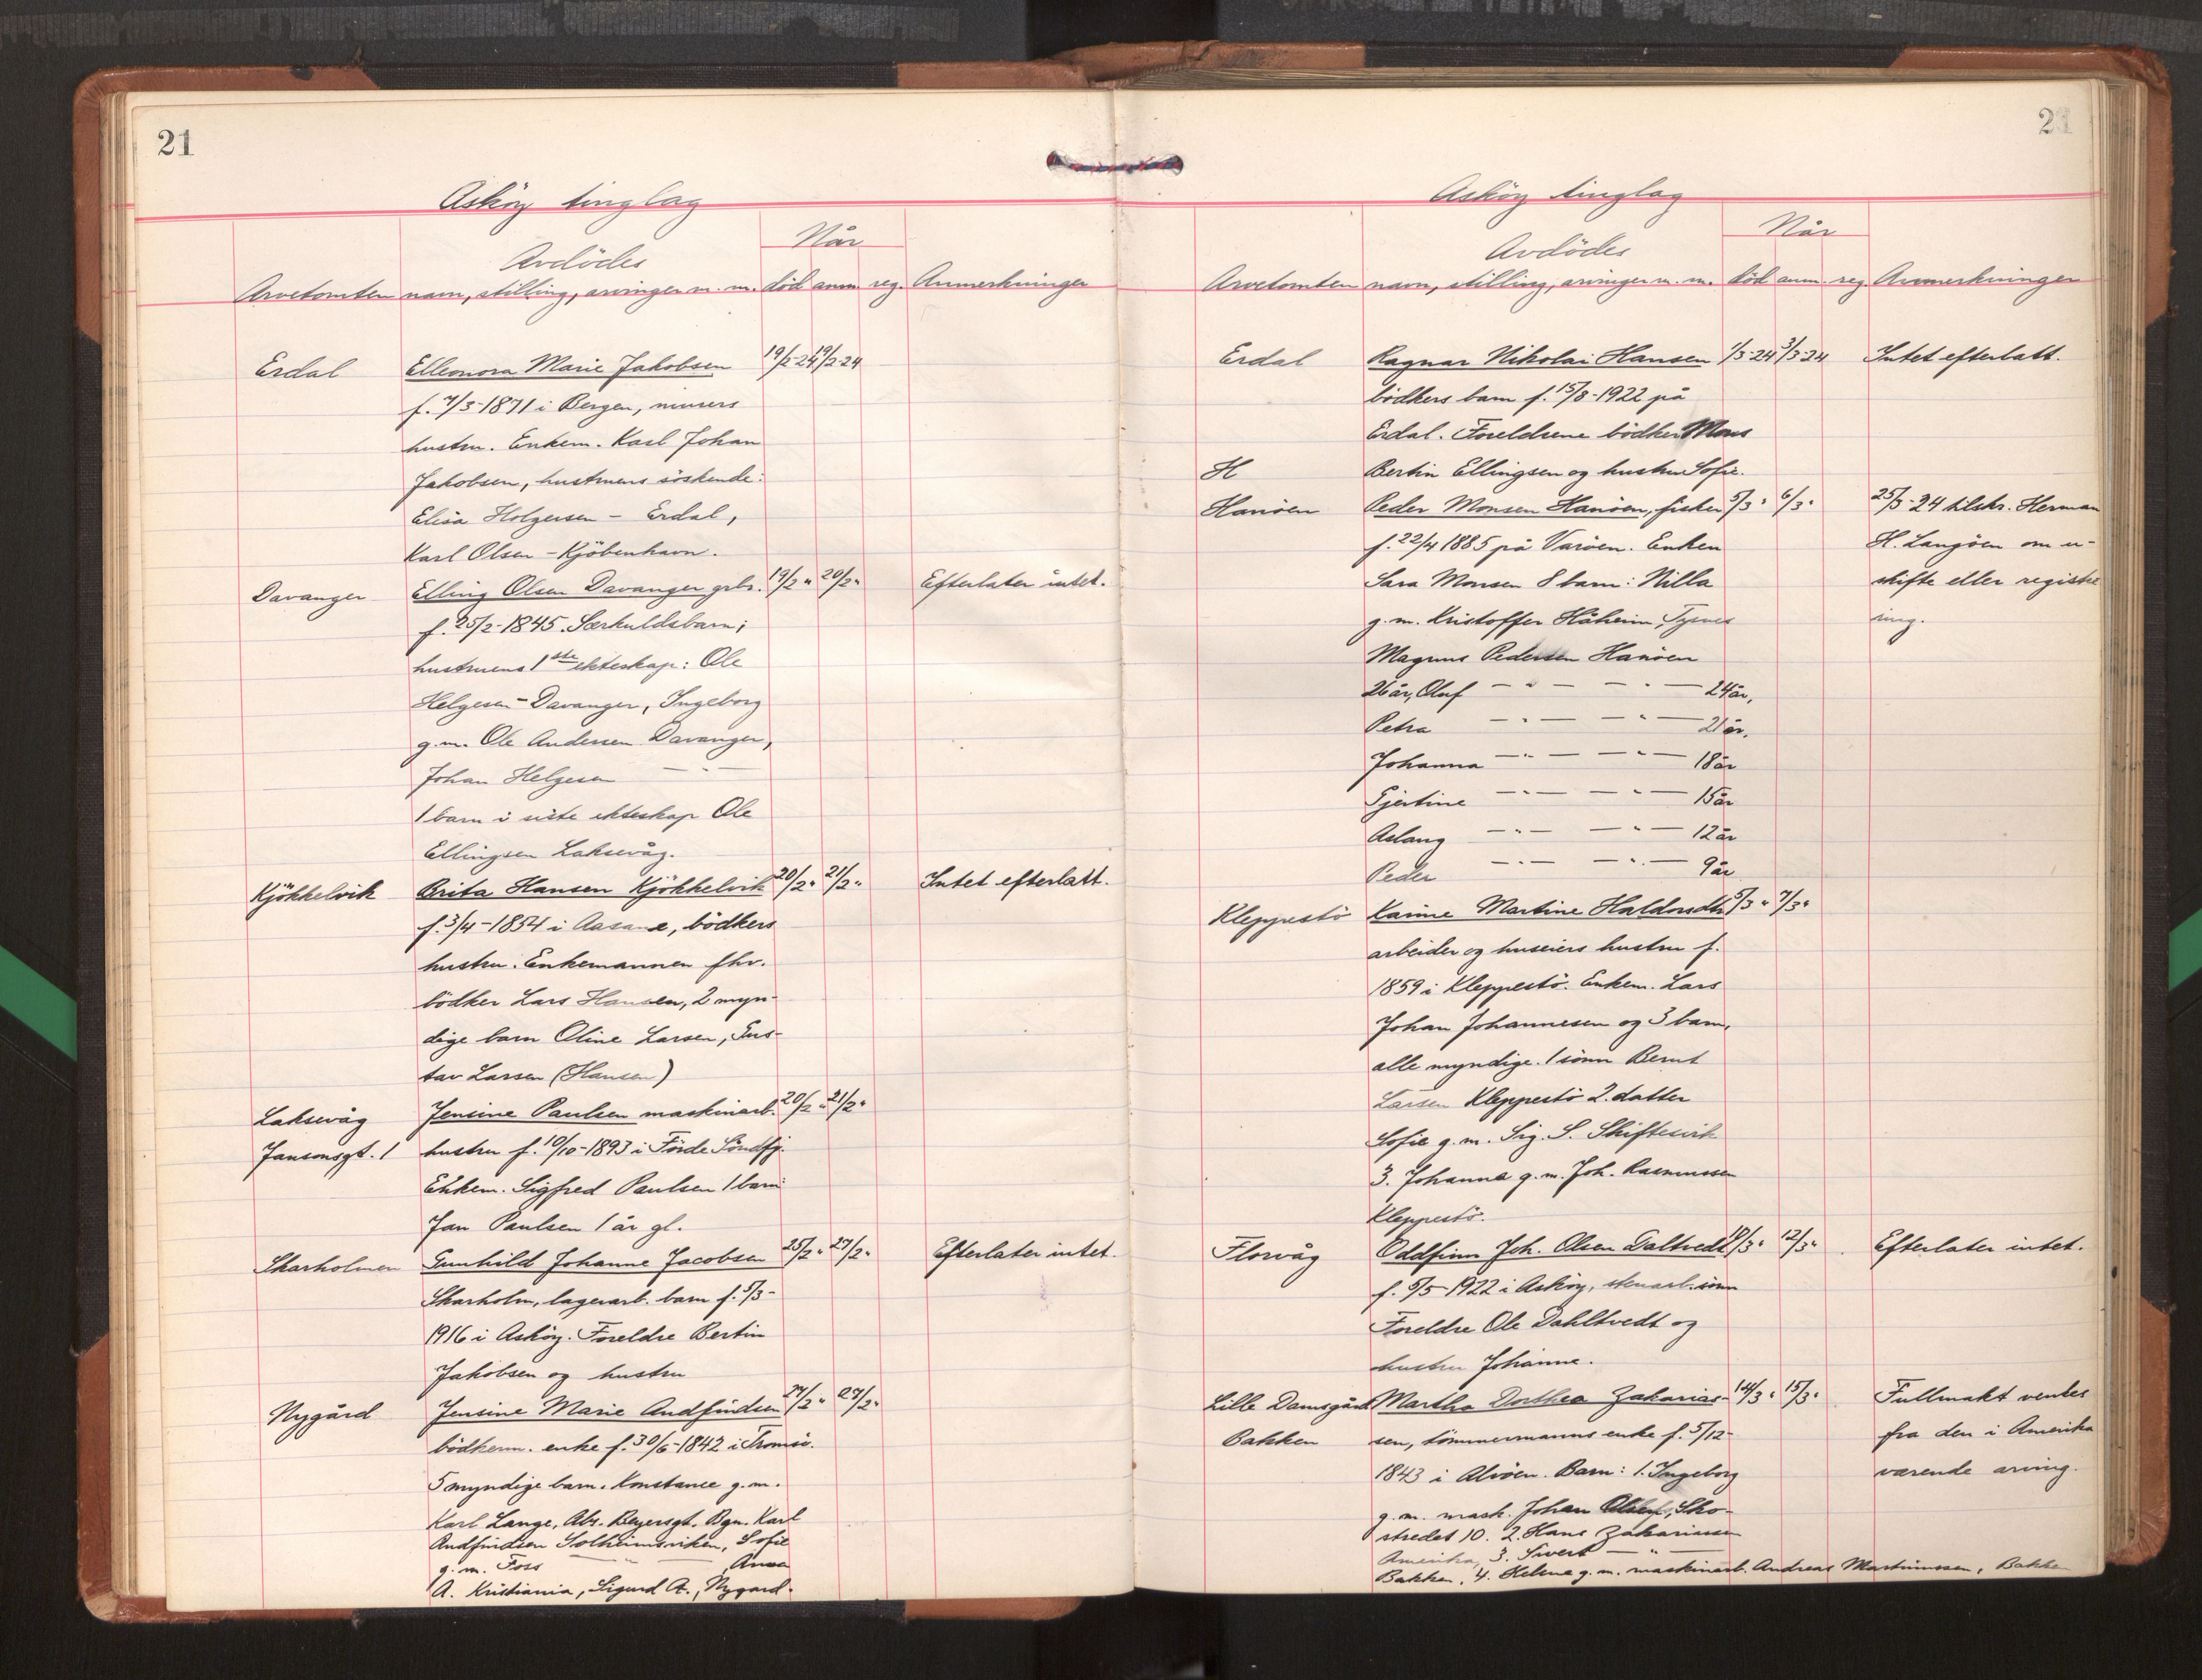 21
Asköy tinglag
Når
Avdödes
Arvetomten navn, stilling, arvinger m. m. död anm. reg. Anmerkninger
Erdal Elleonora Marie Jakobsen 19/2-24 19/2-24
f. 7/3-1871 i Bergen, murers
hustru. Enkem. Karl Johan
Jakobsen, hustruens söskende:
Elisa Holgersen - Erdal,
Karl Olsen - Kjöbenhavn.
Davanger Elling Olsen Davanger grbr. 19/2 " 20/2 " Efterlater intet.
f. 25/2-1845. Særkuldsbarn;
hustruens 1ste ekteskap: Ole
Helgesen - Davanger, Ingeborg
g.m. Ole Andersen Davanger,
Johan Helgesen — " —
1 barn i siste ekteskap Ole
Ellingsen Laksevåg.
Kjökkelvik Brita Hansen Kjökkelvik 20/2 " 21/2 " Intet efterlatt.
f. 3/4-1854 i Aasane, bödkers
hustru. Enkemannen fhv.
bödker Lars Hansen, 2 myn-
dige barn Oline Larsen, Gus-
tav Larsen (Hansen)
Laksevåg Jensine Paulsen maskinarb. 20/2 " 21/2 "
Jansonsgt. 1 hustru f. 10/10-1893 i Förde Söndfj.
Enkem. Sigfred Paulsen 1 barn
Jan Paulsen 1 år gl.
Skarholmen Gunhild Johanne Jacobsen 25/2 " 27/2 " Efterlater intet.
Skarholm, lagerarb. barn f. 5/3-
1916 i Asköy. Foreldre Bertin
Jakobsen og hustru
Nygård Jensine Marie Andfindsen 27/2 " 27/2 "
bödkerm. enke f. 30/6-1842 i Tromsö.
5 myndige barn. Konstance g.m.
Karl Lange, Abs. Beyersgt. Bgn. Karl
Andfindsen Solheimsviken, Sofie
g.m. Foss — " — Anna
A. Kristiania, Sigurd A., Nygard.
Asköy tinglag
Når
Avdödes
Arvetomten navn, stilling, arvinger m. m. död anm. reg. Anmerkninger
Erdal Ragnar Nikolai Hansen 1/3-24 3/3-24 Intet efterlatt.
bödkers barn f. 15/8-1922 på
Erdal. Foreldrene bödker Mons
H Bertin Ellingsen og hustru Sofie.
Hanöen Peder Monsen Hanöen, fisker 5/3 " 6/3 " 25/3-24 tilskr. Herman
f. 22/4 1885 på Varöen. Enken H. Langöen om u-
Sara Monsen 8 barn: Nilla skifte eller registre
g.m. Kristoffer Håheim, Tysnes ring.
Magnus Pedersen Hanöen
26 år, Oluf — " — — " — 24 år,
Petra — " — — " — 21 år,
Johanna — " — — " — 18 år
Gjertine — " — — " — 15 år
Aslaug — " — — " — 12 år
Peder — " — — " — 9 år
Kleppestö Karine Martine Haldorsdtr 5/3 " 7/3 "
arbeider og huseiers hustru f.
1859 i Kleppestö. Enkem. Lars
Johan Johannesen og 3 barn,
alle myndige. 1 sönn Bernt
Larsen Kleppestö 2. datter
Sofie g.m. Sig. S. Skiftesvik
3. Johanna g.m. Joh. Rasmussen
Kleppestö.
Florvåg Oddfinn Joh. Olsen Daltvedt 10/3 " 12/3 " Efterlater intet.
f. 5/5-1922 i Asköy, stenarb. sönn
Foreldre Ole Dahltvedt og
hustru Johanne.
Lille Damsgård Martha Dorthea Zakarias- 14/3 " 15/3 " Fullmakt ventes
Bakken sen, tömmermanns enke f. 5/12- fra den i Amerika
1843 i Alvöen. Barn: 1. Ingeborg værende arving.
g.m. mask. Johan Olsen, Sko-
stredet 10. 2. Hans Zakariassen
Amerika, 3. Sivert — " —
Bakken, 4. Helene g.m. maskinarb. Andreas Martinussen, Bakken